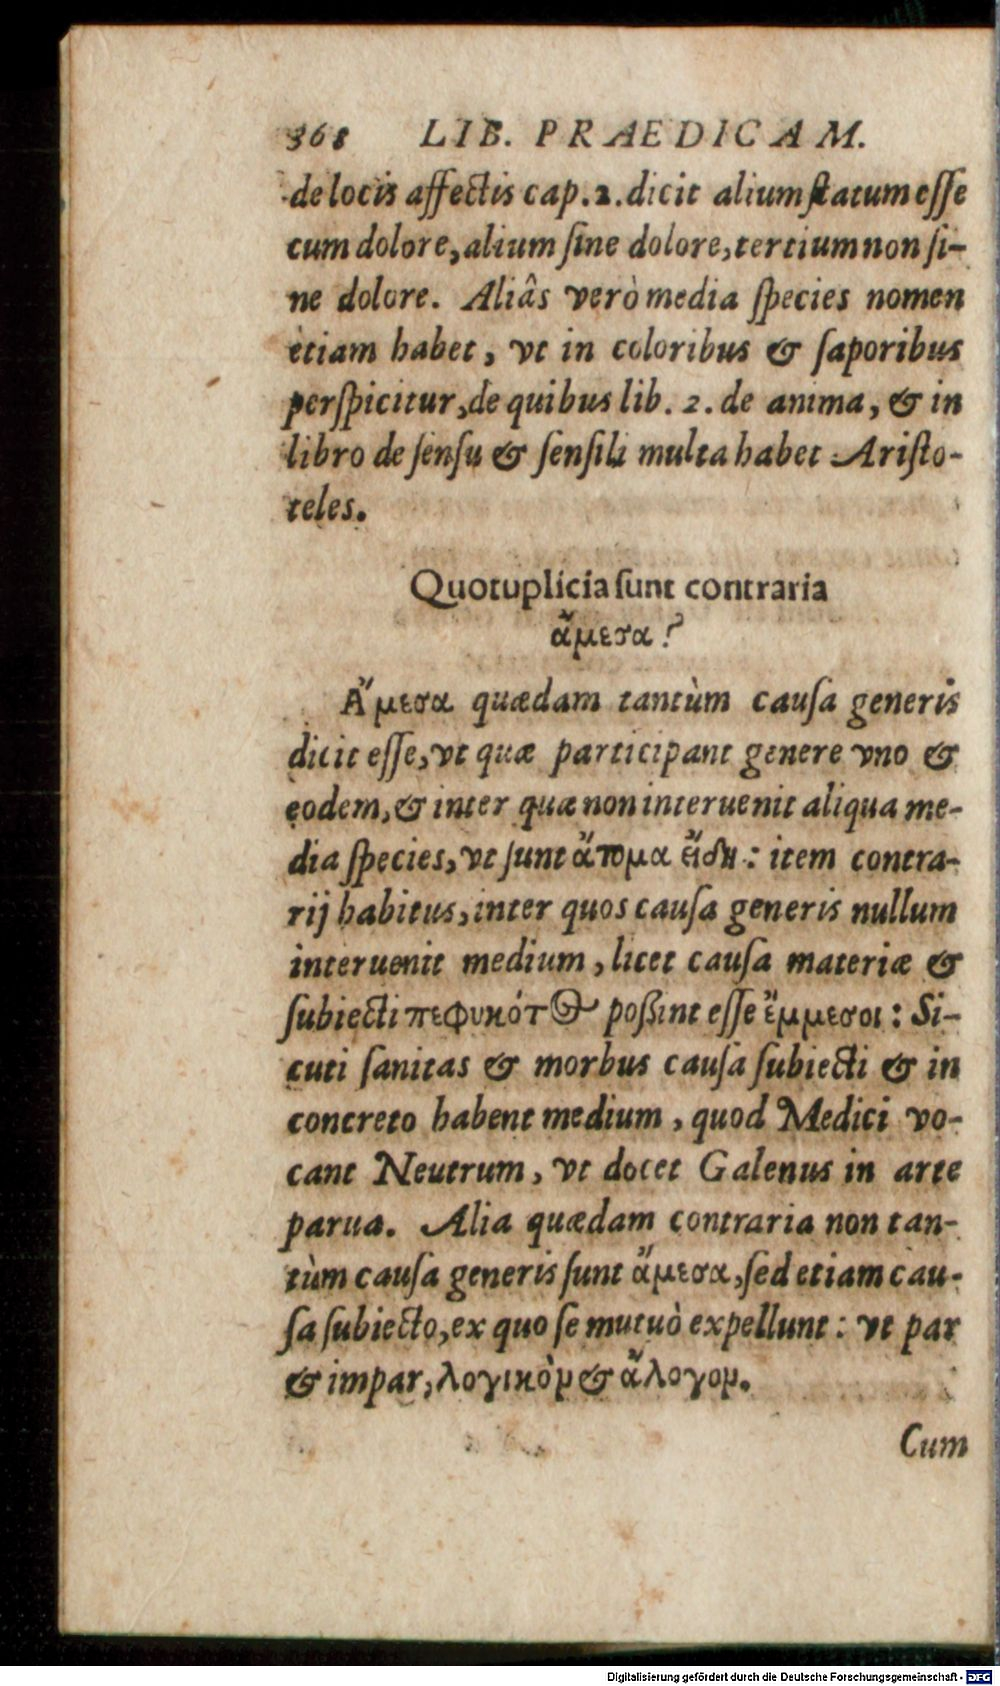 368 LIB. PRAEDICAM.
de locis affectis cap. 2. dicit alium ſtatum eſſe
cum dolore, alium ſine dolore, tertium non ſi-
ne dolore. Aliâs verò media ſpecies nomen
etiam habet, vt in coloribus & ſaporibus
perſpicitur, de quibus lib. 2. de anima, & in
libro de ſenſu & ſenſili multa habet Ariſto-
teles.
Quotuplicia ſunt contraria
ἄμεσα?
Ἄμεσα quædam tantùm cauſa generis
dicit eſſe, vt quæ participant genere vno &
eodem, & inter quæ non interuenit aliqua me-
dia ſpecies, vt ſunt ἄτομα εἴδη: item contra-
rij habitus, inter quos cauſa generis nullum
interuenit medium, licet cauſa materiæ &
ſubiecti πεφυκότος poßint eſſe ἔμμεσοι: Si-
cuti ſanitas & morbus cauſa ſubiecti & in
concreto habent medium, quod Medici vo-
cant Neutrum, vt docet Galenus in arte
parua. Alia quædam contraria non tan-
tùm cauſa generis ſunt ἄμεσα, ſed etiam cau-
ſa ſubiecto, ex quo ſe mutuò expellunt: vt par
& impar, λογικὸν & ἄλογον.
Cum
Digitalisierung gefördert durch die Deutsche Forschungsgemeinschaft - DFG